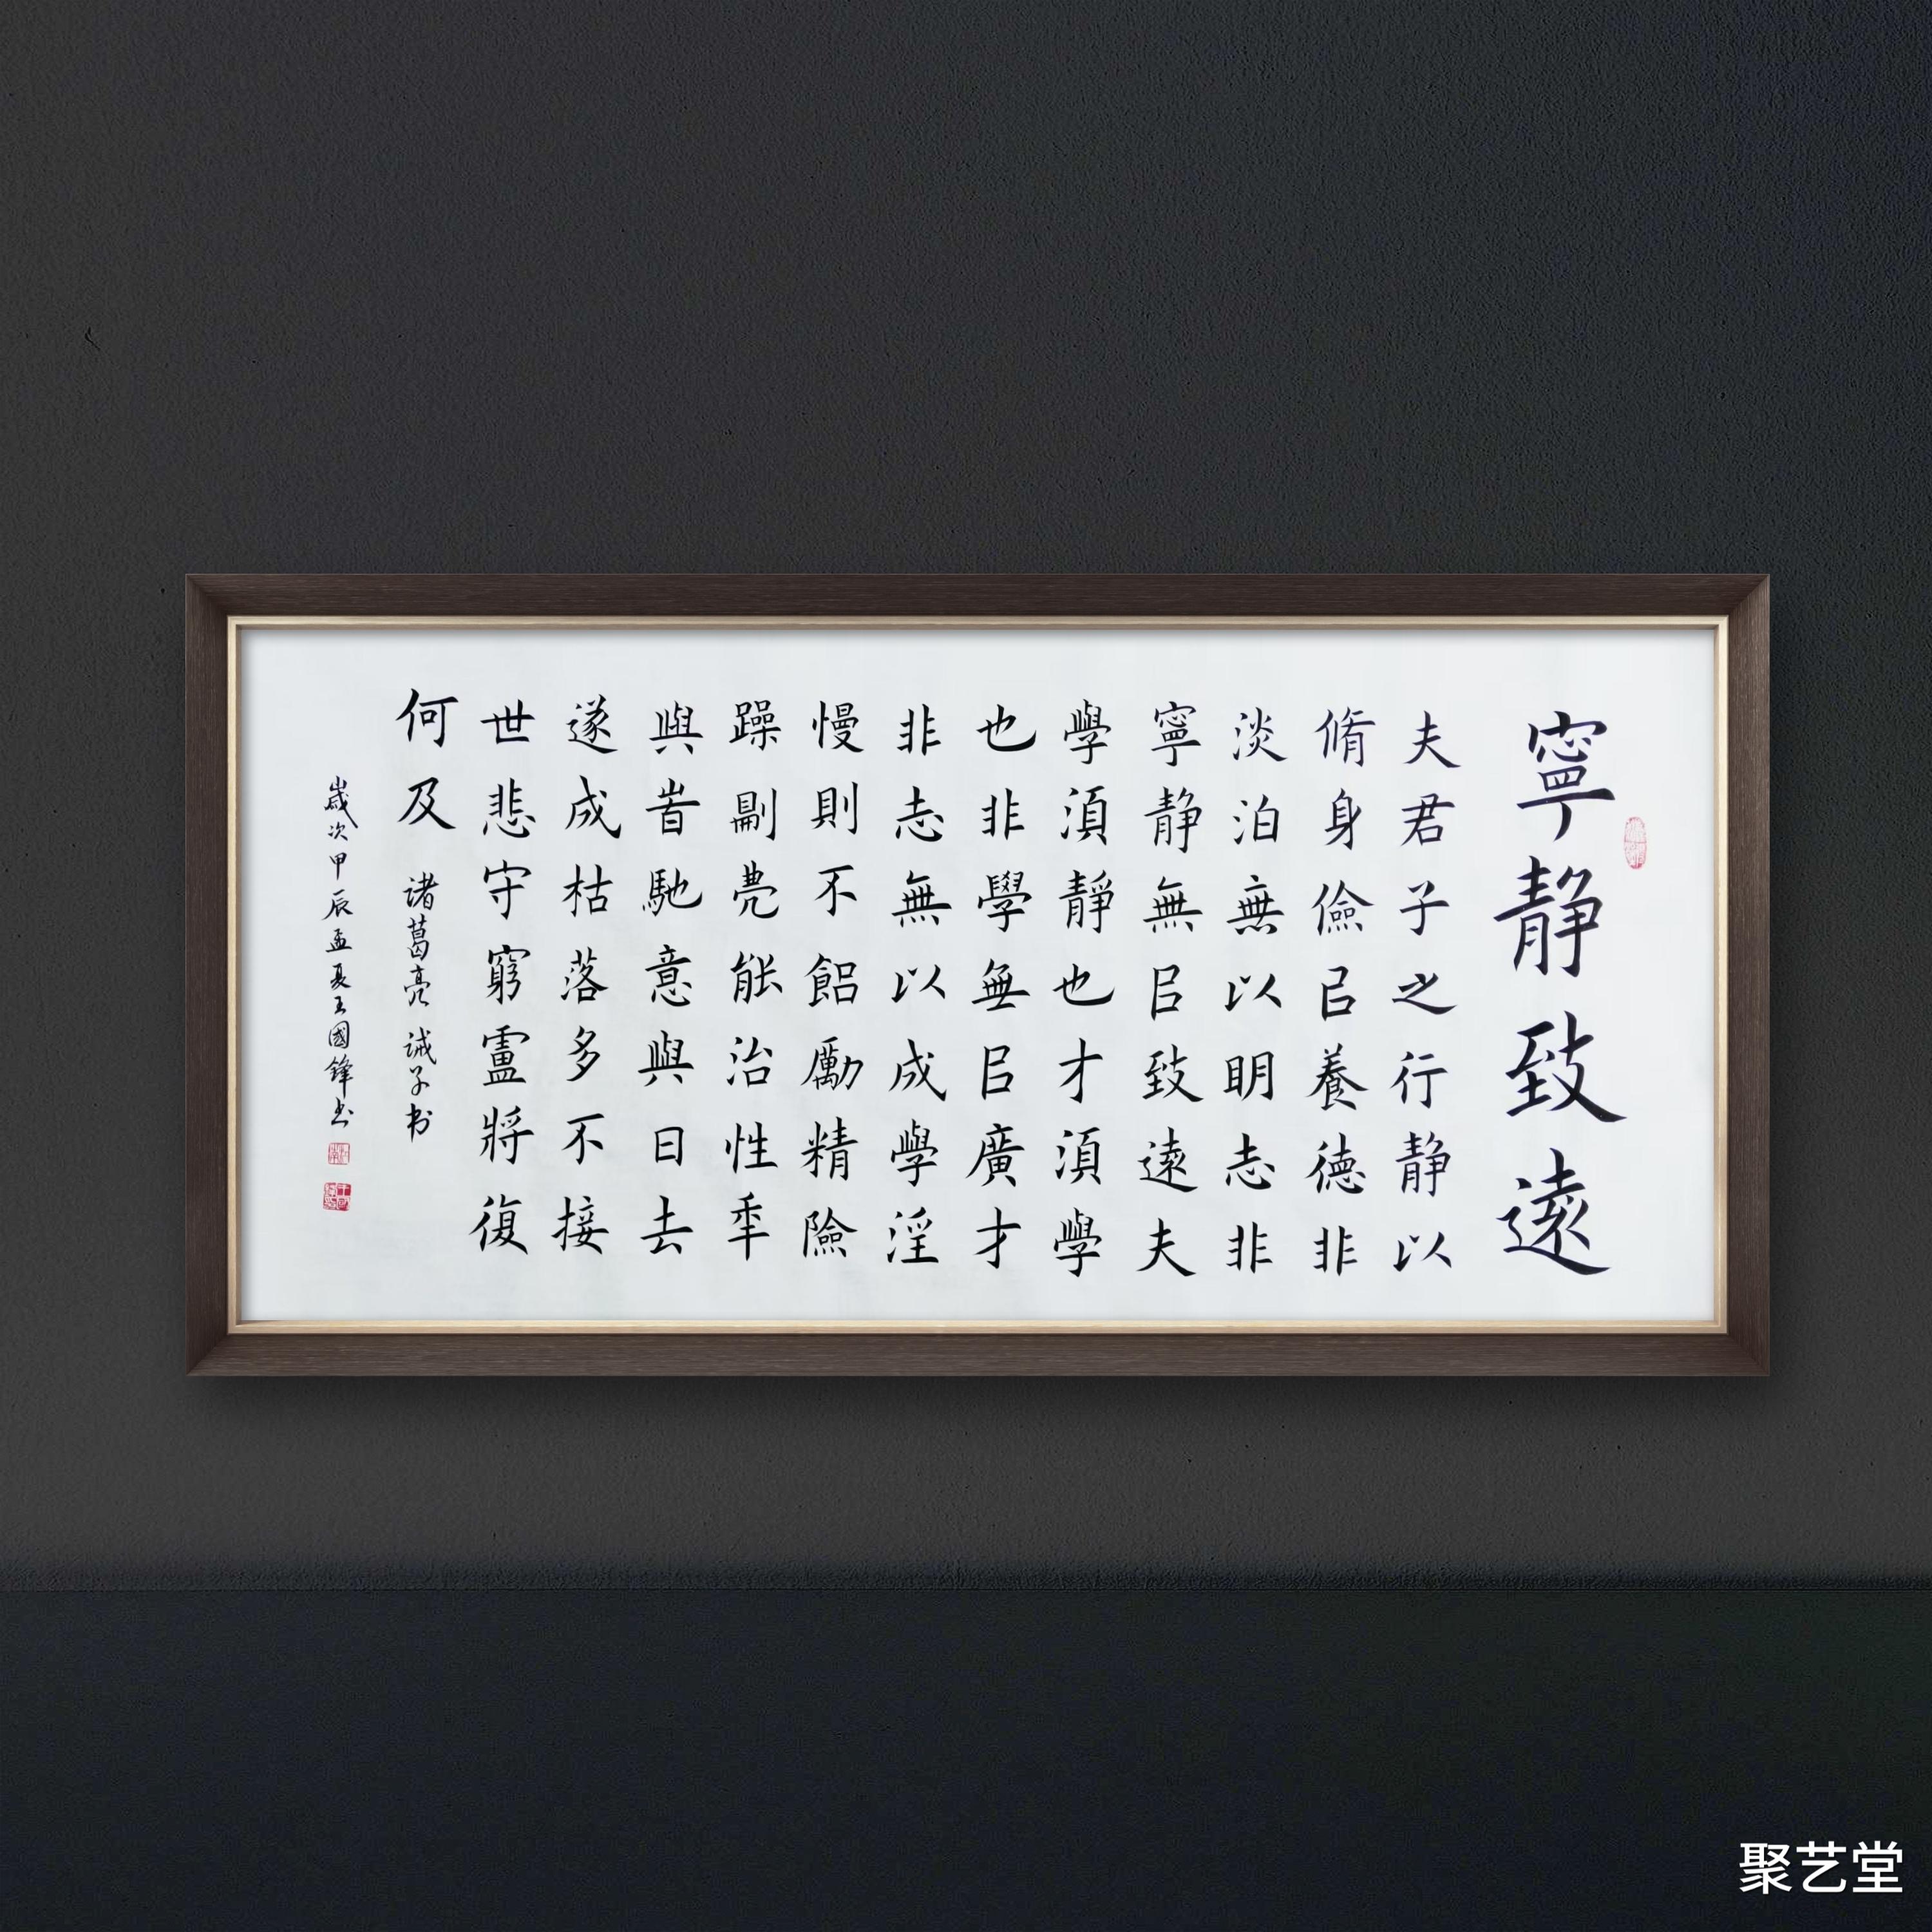 寧靜致遠
夫君子之行静以
脩身儉㠯養德非
淡泊無以明志非
寧静無㠯致遠夫
學須靜也才須學
也非學無㠯廣才
非志無以成學淫
慢則不能勵精險
躁則亮能治性年
與時馳意與日去
遂成枯落多不接
世悲守窮廬將復
何及 诸葛亮 诫子书
歲次甲辰孟夏王國鋒书
聚艺堂